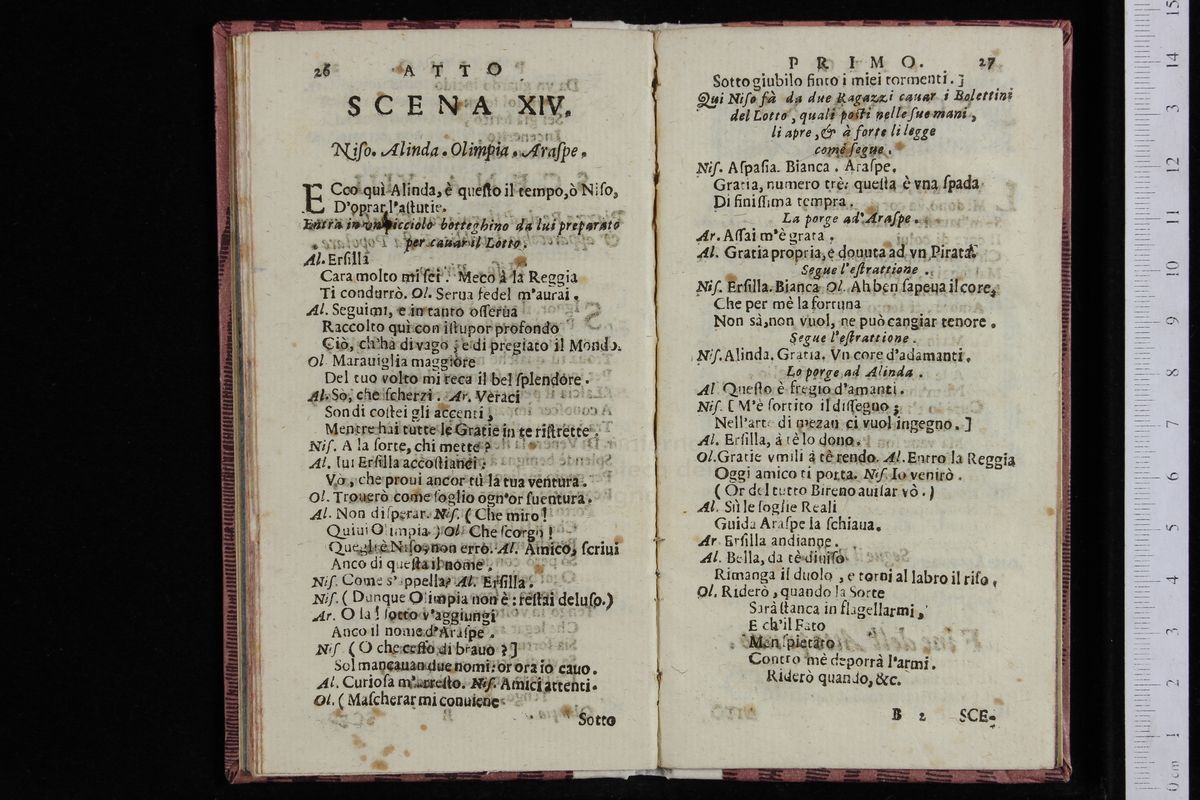 26 ATTO
SCENA XIV.
Niſo. Alinda. Olimpia. Araſpe.
ECco quì Alinda, è queſto il tempo, ò Niſo,
D'oprar l'aſtutie.
Entra in un picciolo botteghino da lui preparato
per cauar il Lotto.
Al. Erſilla
Cara molto mi ſei. Meco à la Reggia
Ti condurrò. Ol. Serua fedel m'aurai.
Al. Seguimi, e in tanto oſſerua
Raccolto quì con iſtupor profondo
Ciò, ch'hà di vago, e di pregiato il Mondo.
Ol. Marauiglia maggiore
Del tuo volto mi reca il bel ſplendore.
Al. So, che ſcherzi. Ar. Veraci
Son di coſtei gli accenti,
Mentre hai tutte le Gratie in te riſtrette
Niſ. A la ſorte, chi mette?
Al. lui Erſilla accoſtianci:
Vò, che proui ancor tù la tua ventura.
Ol. Trouerò come ſoglio ogn'or ſuentura.
Al. Non diſperar. Niſ. (Che miro!
Quiui Olimpia) Ol. Che ſcorgo!
Quegli è Niſo, non errò. Al. Amico, ſcriui
Anco di queſta il nome.
Niſ. Come s'appella? Al. Erſilla.
Niſ. (Dunque Olimpia non è: reſtai deluſo.)
Ar. O la! ſotto v'aggiungi
Anco il nome d'Araſpe.
Niſ (O che ceffo di brauo?]
Sol mancauan due nomi: or ora io cauo.
Al. Curioſa m'arreſto. Niſ. Amici attenti.
Ol. (Maſcherar mi conuiene
Sotto
PRIMO. 27
Sotto giubilo finto i miei tormenti.]
Qui Niſo fà da due Ragazzi cauar i Bolettini
del Lotto, quali poſti nelle ſue mani,
li apre, & à ſorte li legge
come ſegue.
Niſ. Aſpaſia. Bianca. Araſpe.
Gratia, numero trè: queſta è vna ſpada
Di finiſſima tempra.
La porge ad' Araſpe.
Ar. Aſſai m'è grata.
Al. Gratia propria, e douuta ad vn Pirata.
Segue l'eſtrattione.
Niſ. Erſilla. Bianca Ol. Ah ben ſapeua il core,
Che per mè la fortuna
Non sà, non vuol, ne può cangiar tenore.
Segue l'eſtrattione.
Niſ. Alinda. Gratia. Vn core d'adamanti.
Lo porge ad Alinda.
Al Queſto è fregio d'amanti.
Niſ. [M'è ſortito il diſſegno;
Nell'arte di mezan ci vuol ingegno.]
Al. Erſilla, à tè lo dono.
Ol. Gratie vmili à tè rendo. Al. Entro la Reggia
Oggi amico ti porta. Niſ. Io venirò.
(Or del tutto Bireno auiſar vò.)
Al. Sù le ſoglie Reali
Guida Araſpe la ſchiaua.
Ar Erſilla andianne.
Al. Bella, da tè diuiſo
Rimanga il duolo, e torni al labro il riſo,
Ol. Riderò, quando la Sorte
Sarà ſtanca in flagellarmi,
E ch'il Fato
Men ſpietato
Contro mè deporrà l'armi.
Riderò quando, &c.
B 2 SCE-